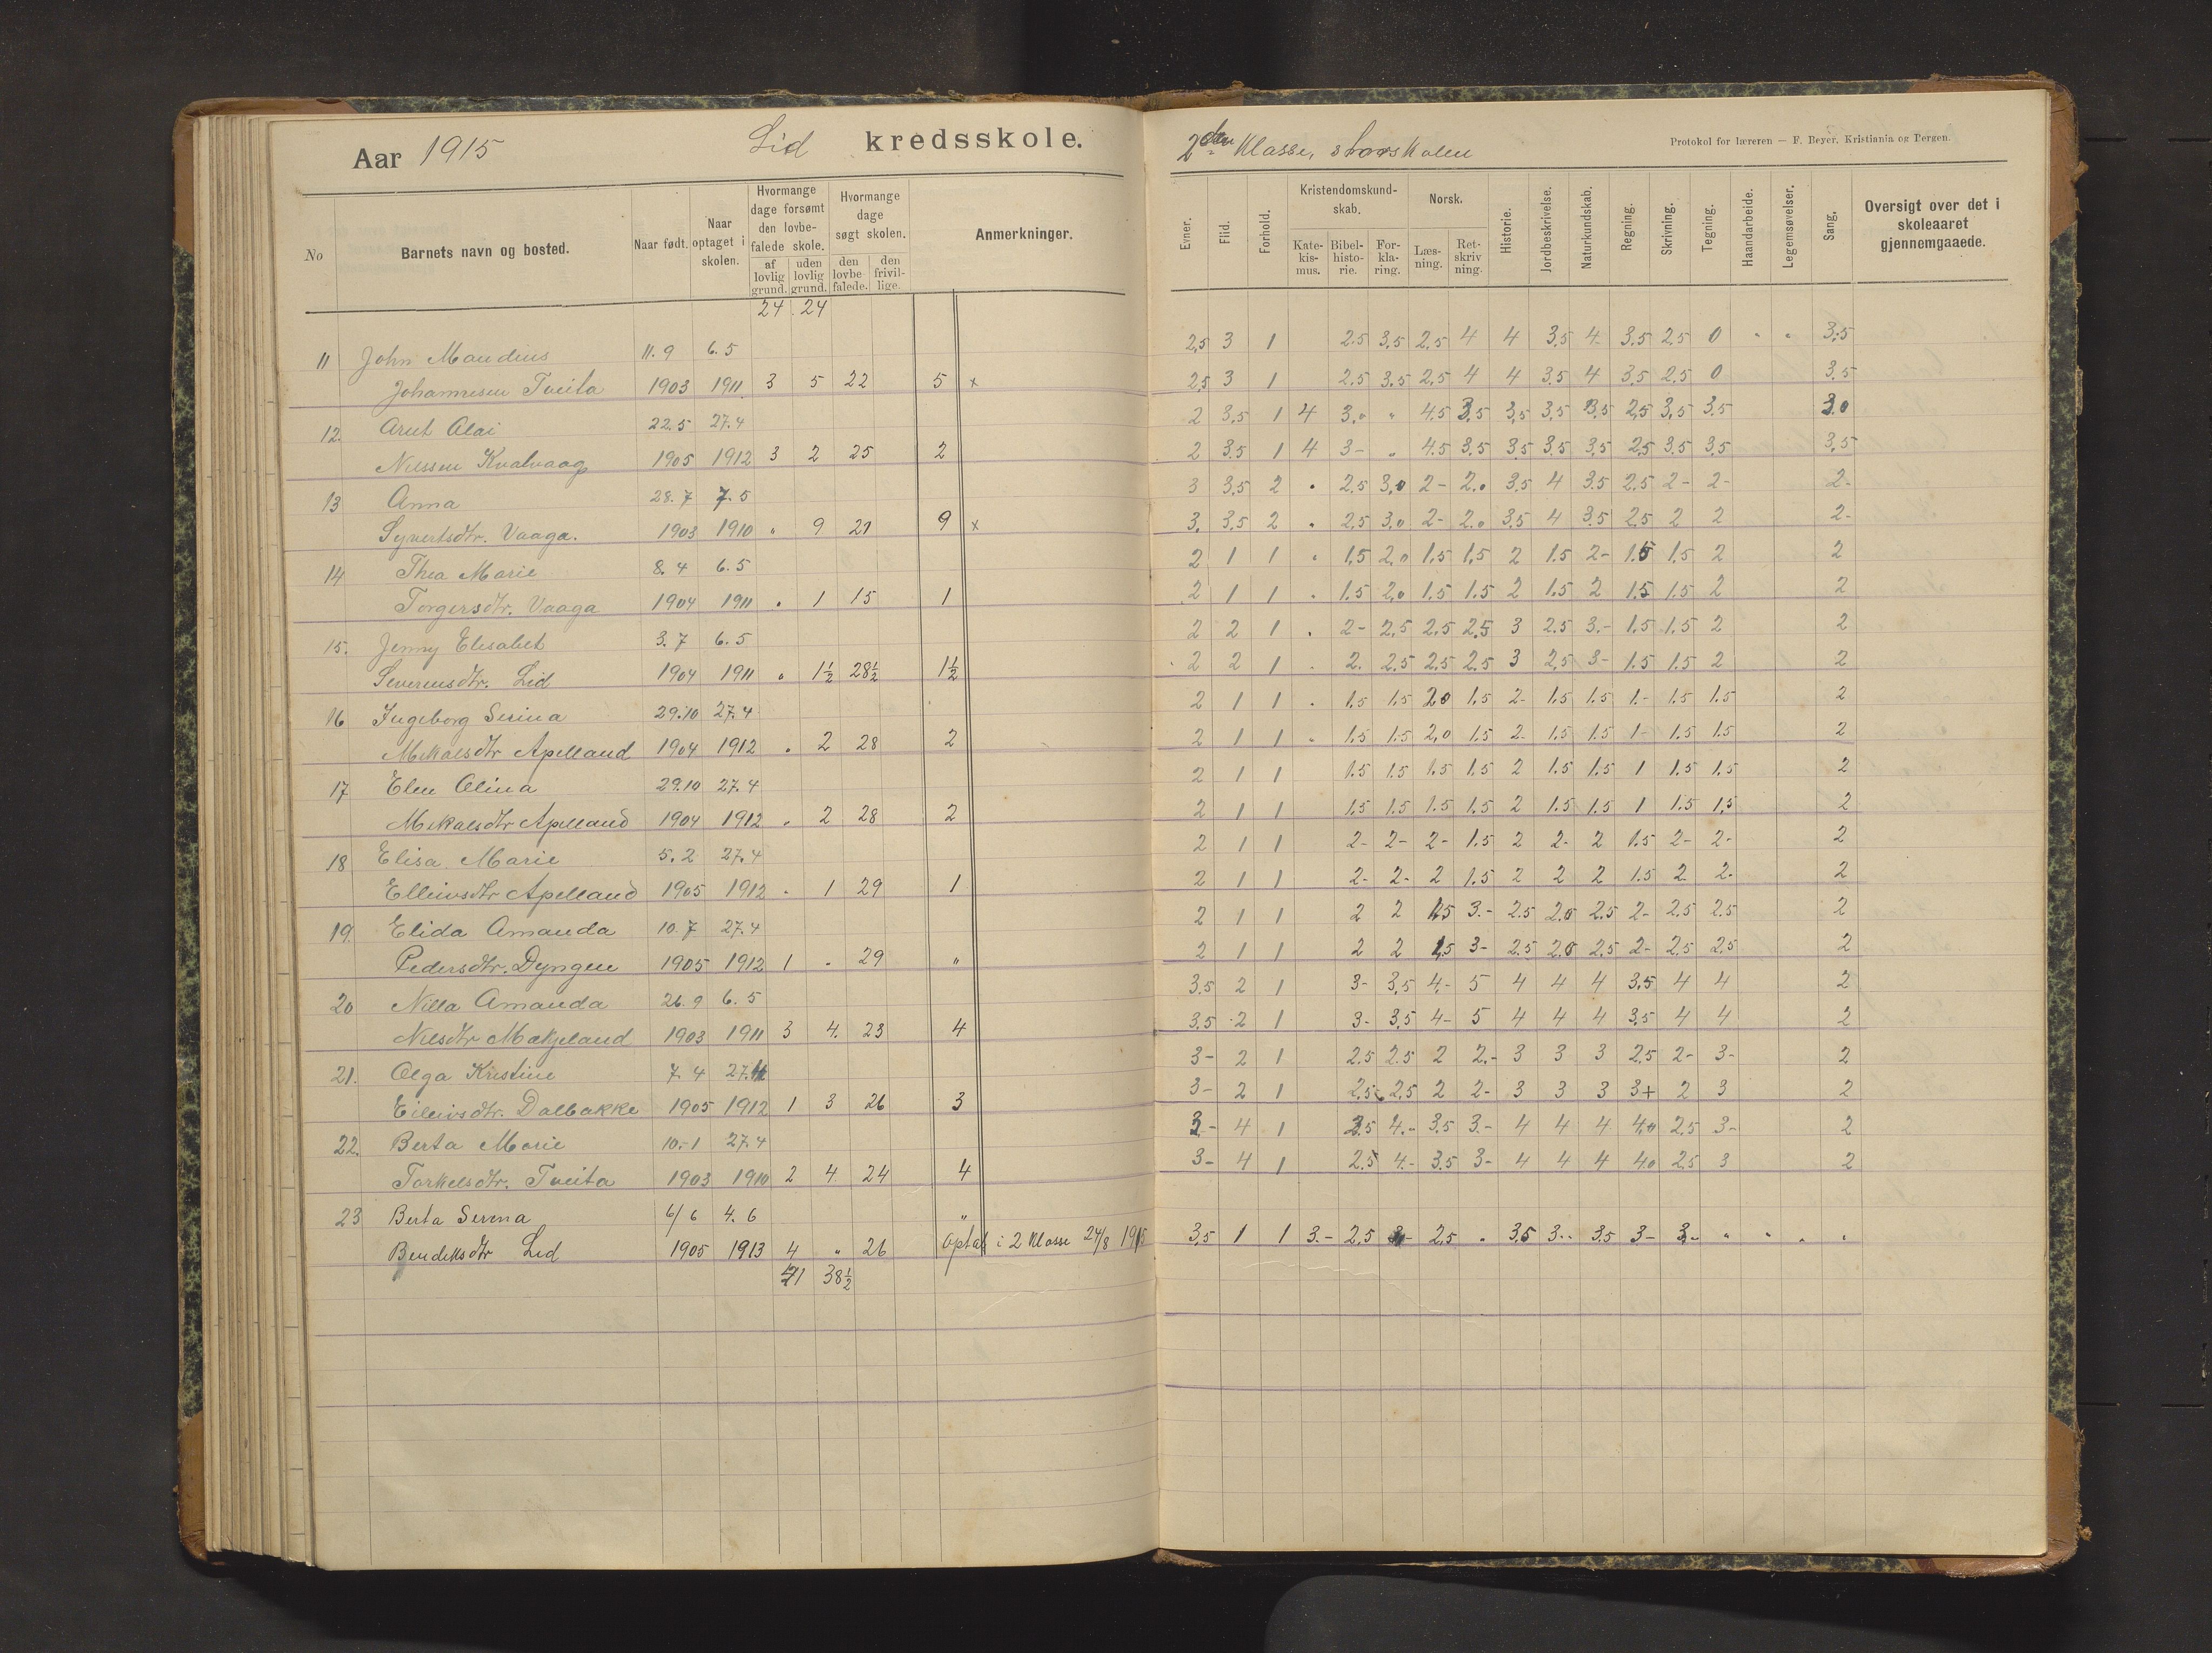 Aar 1915 Lid kredsskole.
No Barnets navn og bosted. Naar født. Naar optaget i skolen. Hvormange dage forsømt den lovbefalede skole. af lovlig grund. uden lovlig grund. Hvormange dage søgt skolen. den lovbefalede. den frivillige. Anmerkninger.
24 24
11 John Maudius 11.9 6.5
Johannesen Tveita 1903 1911 3 5 22 5 x
12 Arut Olai 22.5 27.4
Nilssen Kvalvaag 1905 1912 3 2 25 2
13 Anna 28.7 7.5
Syvertsdtr. Vaaga. 1903 1910 " 9 21 9 x
14 Thea Marie 8.4 6.5
Torgersdtr. Vaaga 1904 1911 " 1 15 1
15. Jenny Elisabet 3.7 6.5
Severinsdtr. Lid 1904 1911 " 1½ 28½ 1½
16 Ingeborg Serina 29.10 27.4
Mikalsdtr Apelland 1904 1912 " 2 28 2
17 Elen Olina 29.10 27.4
Mikalsdtr Apelland 1904 1912 " 2 28 2
18 Elisa Marie 5.2 27.4
Elleivsdtr Apelland 1905 1912 " 1 29 1
19. Elida Amanda 10.7 27.4
Pedersdtr. Dyngen 1905 1912 1 " 29 "
20 Nilla Amanda 26.9 6.5
Nilsdtr Mækjeland 1903 1911 3 4. 23 4
21. Olga Kristine 7.4 27.4
Eileivsdtr. Dalbakke 1905 1912 1 3 26 3
22. Berta Marie 10.-1 27.4
Torkelsdtr. Tveita 1903 1910 2 4 24 4
23 Berta Serina 6/6 4.6 "
Bendiksdtr Lid 1905 1913 4 " 26 optat i 2 Klasse 24/8 1915
38½
2den Klasse, storskolen
Protokol for læreren — F. Beyer, Kristiania og Bergen.
Evner. Flid. Forhold. Kristendomskundskab. Katekismus. Bibelhistorie. Forklaring. Norsk. Læsning. Retskrivning. Historie. Jordbeskrivelse. Naturkundskab. Regning. Skrivning. Tegning. Haandarbeide. Legemsøvelser. Sang. Oversigt over det i skoleaaret gjennemgaaede.
2,5 3 1 2.5 3,5 2,5 4 4 3,5 4. 3.5 2,5 0 " " 3,5
2,5 3 1 2.5 3.5 2,5 4 4 3.5 4 3,5 2.5 0 3.5
2 3.5 1 4 3." " 4.5 3,5 3,5 3,5 3,5 2,5 3,5 3.5 3.0
2 3.5 1 4 3- " 4.5 3,5 3,5 3,5 3,5 2,5 3.5 3,5 3,5
3 3,5 2 " 2,5 3,0 2- 2.0 3,5 4 3.5 2.5 2- 2- 2-
3. 3,5 2 " 2,5 3,0 2- 2.0 3,5 4 3,5 2,5 2 2 2-
2 1 1 " 1,5 2,0 1,5 1,5 2 1.5 2- 1.5 1,5 2 2
2 1 1 " 1.5 2,0 1.5 1.5 2 1.5 2 1.5 1.5 2 2
2 2 1 " 2- 2,5 2,5 2,5 3 2.5 3.- 1.5 1.5 2 2
2 2 1 " 2. 2.5 2,5 2.5 3 2,5 3- 1.5 1.5 2 2
2 1 1 " 1.5 1.5 2.0 1.5 2- 1.5 1.5 1.- 1.5 1.5 2
2 1 1 " 1.5 1.5 2,0 1.5 2- 1.5 1.5 1- 1.5 1.5 2
2 1 1 1.5 1.5 1.5 1,5 2 1.5 1.5 1 1.5 1.5 2
2 1 1 1.5 1.5 1.5 1.5 2 1.5 1.5 1 1.5 1,5 2
2 1 1 2- 2- 2- 1.5 2 2- 2 1.5 2- 2- 2
2 1 1 2- 2- 2 1.5 2 2 2 1.5 2 2- 2
2 1 1 2 2 1.5 3.- 2.5 2.0 2.5 2- 2,5 2.5 2
2 1 1 2 2 1,5 3- 2.5 2.0 2.5 2- 2.5 2.5 2
3.5 2 1 3- 3,5 4.- 5 4 4 4 3,5 4 4 2
3.5 2 1 3- 3,5 4- 5 4 4 4 3,5 4 4 2
3- 2 1 2.5 2.5 2 2.- 3 3 3 2,5 2- 3- 2
3- 2 1 2,5 2,5 2 2- 3 3 3 3+ 2 3 2
3- 4 1 2.5 4.- 3.5 3.- 4 4 4 4.0 2,5 3- 2
3- 4 1 2.5 4.- 3.5 3- 4 4 4 4.0 2,5 3 2
3,5 1 1 3.- 2,5 3- 2,5 " 3,5 3.- 3.5 3- 3- " " " "